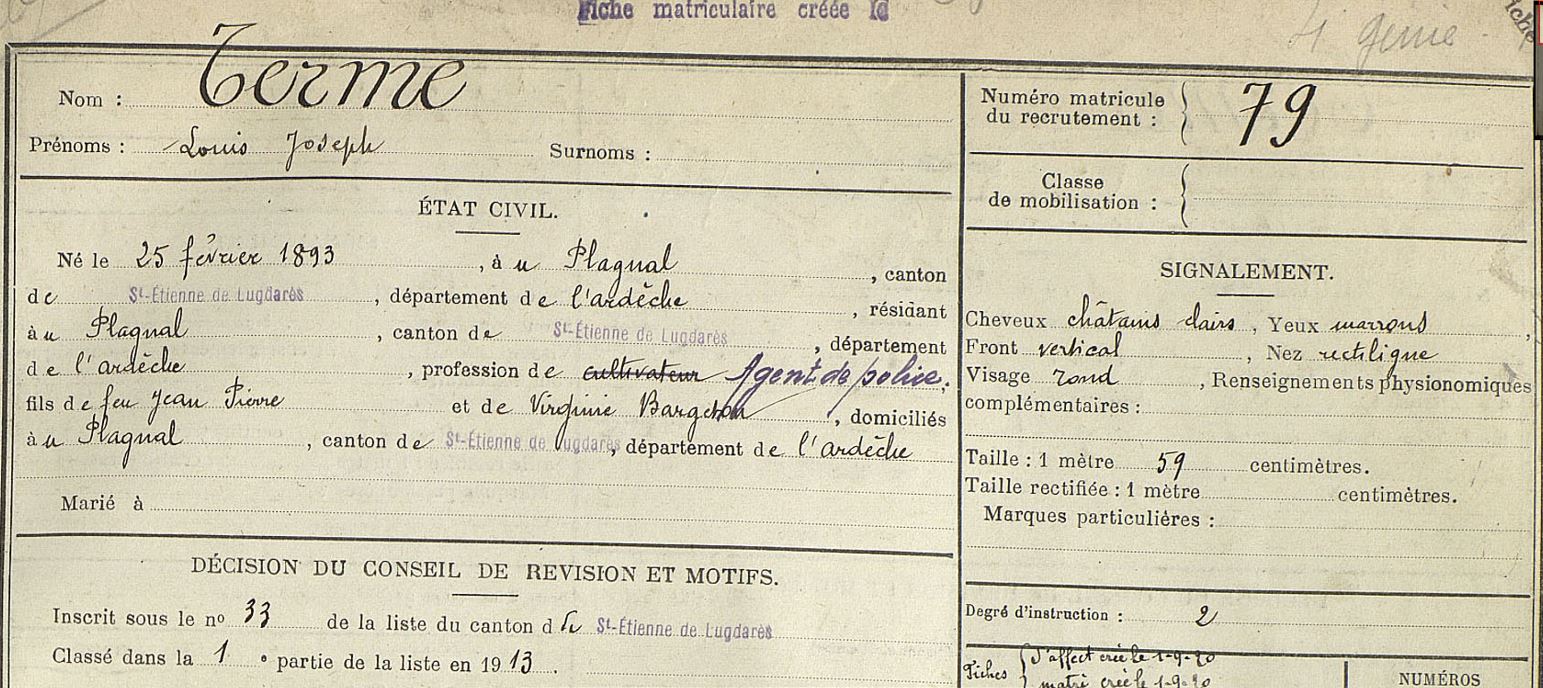 Fiche matriculaire créée
4 génie
Nom : Terme
Prénoms : Louis Joseph Surnoms :
Numéro matricule
du recrutement : 79
Classe
de mobilisation :
ÉTAT CIVIL.
Né le 25 février 1893, à u Plagnal, canton
de St-Étienne de Lugdarès, département de l'ardèche, résidant
à u Plagnal, canton de St-Étienne de Lugdarès, département
de l'ardèche, profession de cultivateur Agent de police,
fils de feu Jean Pierre et de Virginie, domiciliés
à u Plagnal, canton de St-Étienne de Lugdarès, département de l'ardèche
Marié à
DÉCISION DU CONSEIL DE REVISION ET MOTIFS.
Inscrit sous le no 33 de la liste du canton d de St-Étienne de Lugdarès
Classé dans la 1 e partie de la liste en 1913.
SIGNALEMENT.
Cheveux châtains clairs, Yeux marrons,
Front vertical, Nez rectiligne
Visage rond, Renseignements physionomiques
complémentaires :
Taille : 1 mètre 59 centimètres.
Taille rectifiée : 1 mètre centimètres.
Marques particulières :
Degré d'instruction : 2
Fiches d'affect créée le 1-9-20
matri créée le 1-9-20
NUMÉROS